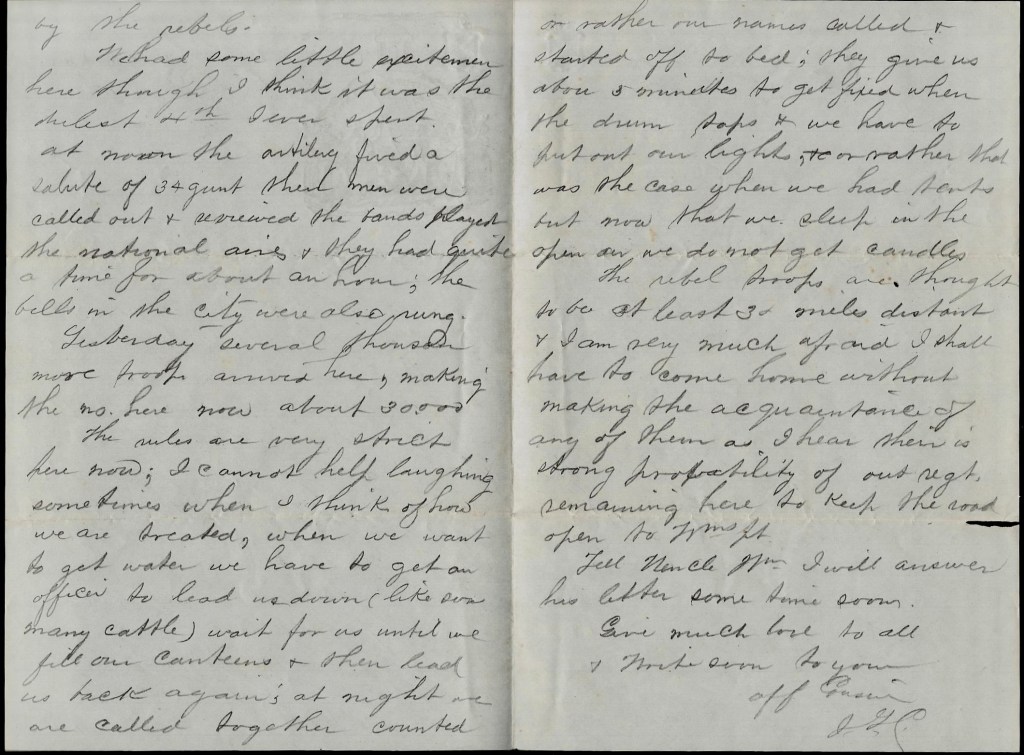 by the rebels.
We had some little excitemen
here though I think it was the
dulest 4th I ever spent.
at noon the artilery fired a
salute of 34 guns then men were
called out & reviewed the bands played
the national airs & they had quite
a time for about an hour; the
bells in the city were also rung.
Yesterday several thousan
more troops arrived here, making
the no. here now about 30.000
The rules are very strict
here now; I cannot help laughing
sometimes when I think of how
we are treated, when we want
to get water we have to get an
officer to lead us down (like soo
many cattle) wait for us until we
fill our canteens & then lead
us back again; at night we
are called together counted
or rather our names called &
started off to bed; they give us
abou 5 minites to get fixed when
the drum taps & we have to
put out our lights, or rather that
was the case when we had tents
but now that we sleep in the
open air we do not get candles
The rebel troops are thought
to be at least 30 miles distant
& I am very much afraid I shall
have to come home without
making the acquaintance of
any of them as I hear their is
strong probability of out regt.
remaining here to keep the road
open to Wmspt
Tell Uncle Wm I will answer
his letter some time soon.
Give much love to all
& Write soon to your
aff Cousin